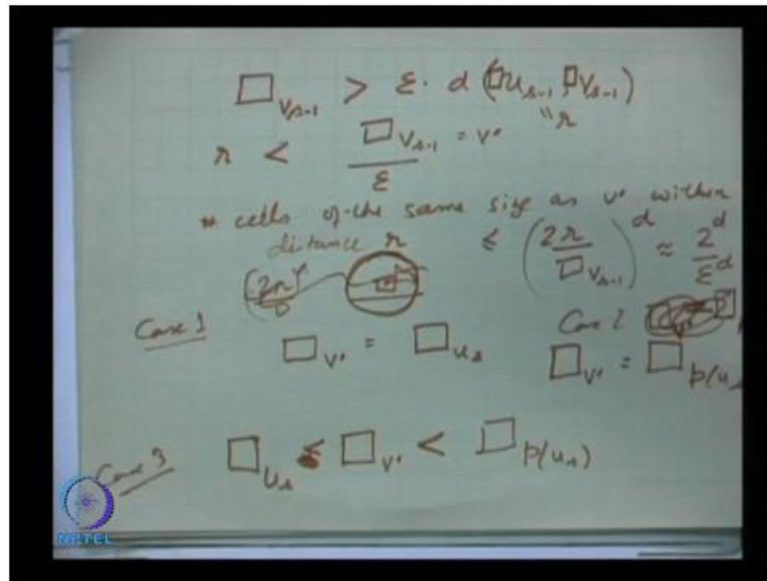 □_{v_{s-1}} > ε · d (□u_{s-1}, □v_{s-1})
"r
r < □_{v_{s-1}} = v' / ε
# cells of the same size as v' within
distance r ≤ (2r / □_{v_{s-1}})^d ≈ 2^d / ε^d
Case 1
Case 2
□_{v'} = □_{u_s}
□_{v'} = □_{p(u_s
Case 3
□_{u_s} ≤ □_{v'} < □_{p(u_s)}
NPTEL